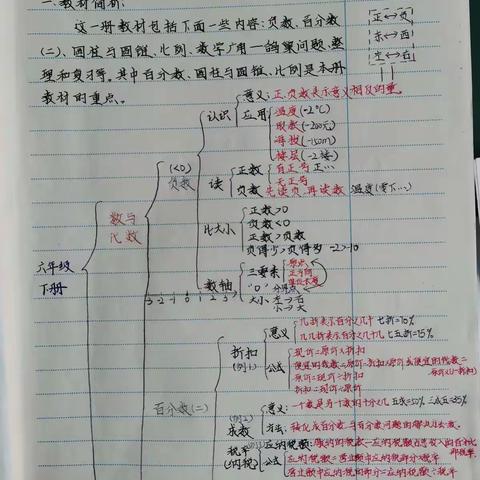 一.教材简析:
这一册教材包括下面一些内容:负数、百分数
(二)、圆柱与圆锥、比例、数学广角—鸽巢问题、整
理和复习等。其中百分数、圆柱与圆锥、比例是本册
教材的重点。
正→负
东→西
左→右
六年级
下册
数与
代数
(<0)
负数
认识
意义:正、负数表示意义相反的量。
应用
温度(-2℃)
取款(-200元)
海拔(-150m)
楼层(-2楼)
读
正数
有正号 正…
无正号
负数 先读负,再读数 温度(零下…)
比大小
正数>0
负数<0
正数>负数
-2>-10
数轴
-3 -2 -1 0 1 2 3
三要素
原点
正方向
单位长度
"0" 分界点
大小 左→右
小→大
百分数(二)
折扣
(例1)
意义
几折表示百分之几十 七折=70%
几几折表示百分之几十几 七五折=75%
公式
现价=原价×折扣
原价=现价÷折扣
折扣=现价÷原价
原价×(1-折扣)
成数
(例2)
意义:一个数是另一个数的十分之几 五成=50% 三成五=35%
方法:转化成百分数,与百分数问题的解决方法类似。
税率
(纳税)
应纳税额:缴纳的税款
公式
应纳税额=营业额中应纳税部分×税率
营业额中应纳税的部分=应纳税额÷税率